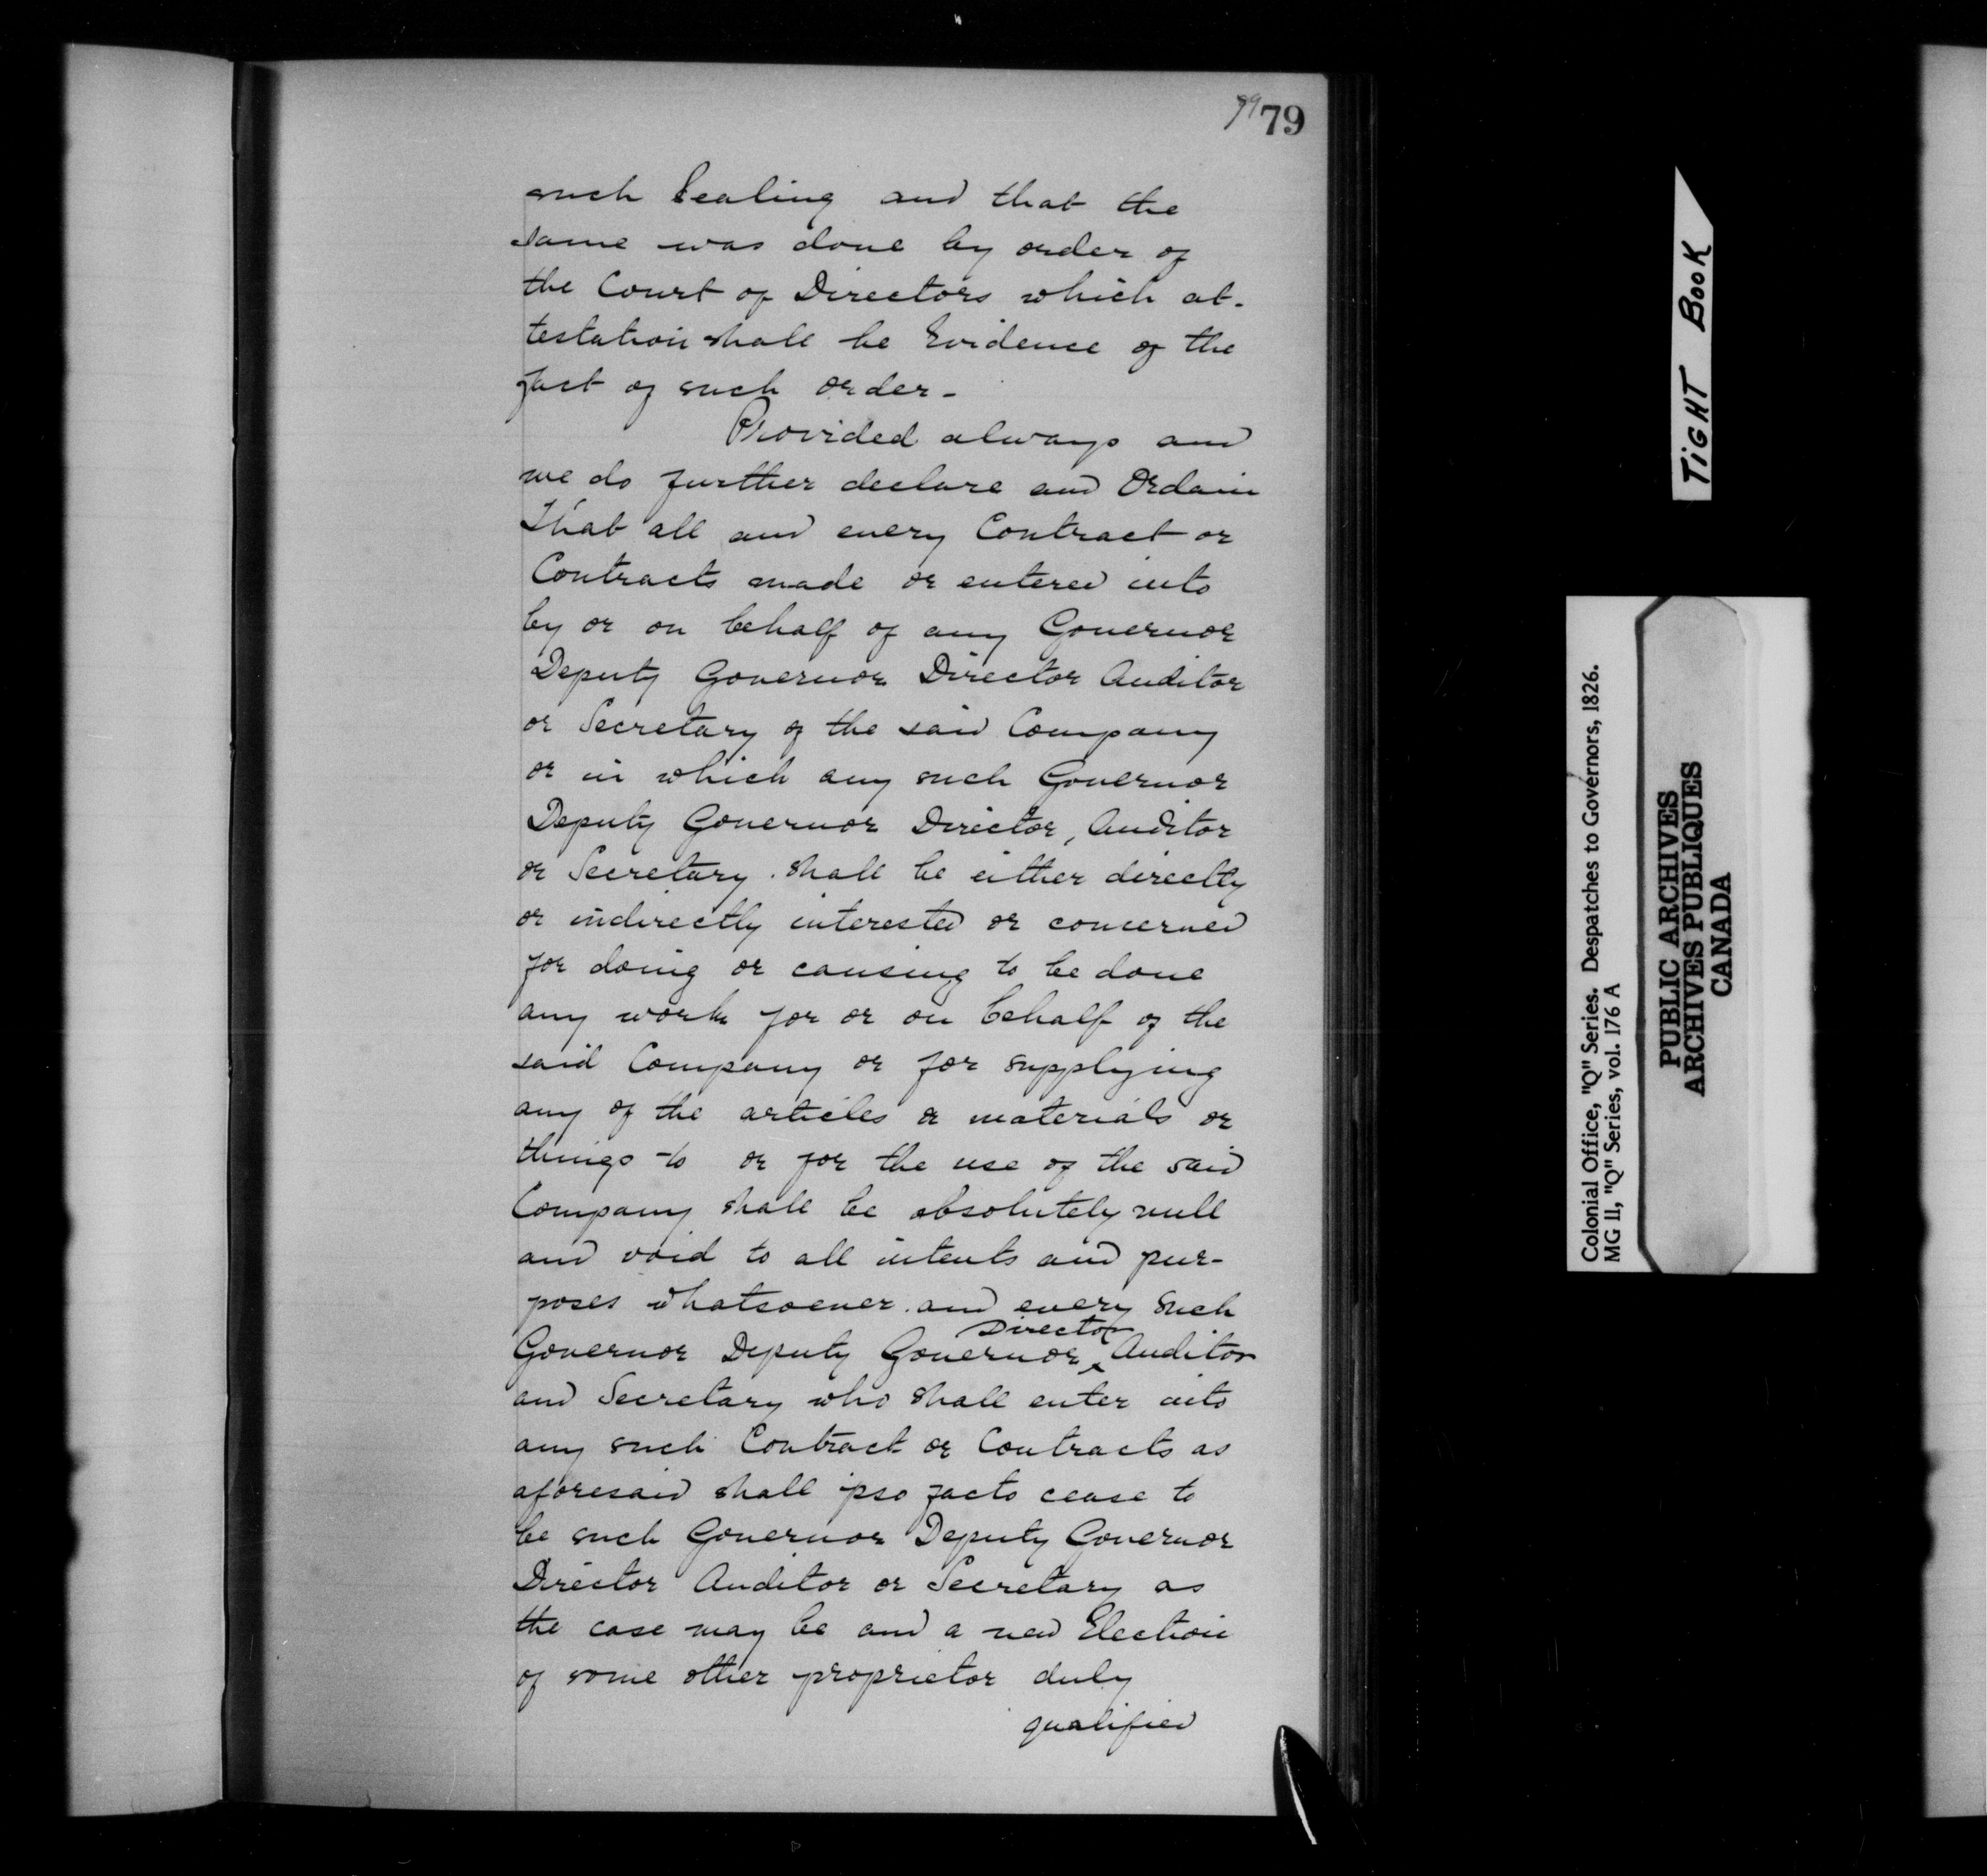 79 79
such Sealing and that the
same was done by order of
the Court of Directors which at-
testation shall be Evidence of the
fact of such order -
Provided always and
we do further declare and Ordain
That all and every Contract or
Contracts made or entered into
by or on behalf of any Governor
Deputy Governor Director Auditor
or Secretary of the said Company
or in which any such Governor
Deputy Governor Director, Auditor
or Secretary shall be either directly
or indirectly interested or concerned
for doing or causing to be done
any work for or on behalf of the
said Company or for supplying
any of the articles or materials or
things to or for the use of the said
Company shall be absolutely null
and void to all intents and pur-
poses whatsoever and every such
Director
Governor Deputy Governor ‸ Auditor
and Secretary who shall enter into
any such Contract or Contracts as
aforesaid shall ipso facto cease to
be such Governor Deputy Governor
Director Auditor or Secretary as
the case may be and a new Election
of some other proprietor duly
qualified
TIGHT BOOK
Colonial Office, "Q" Series. Despatches to Governors, 1826.
MG 11, "Q" Series, vol. 176 A
PUBLIC ARCHIVES
ARCHIVES PUBLIQUES
CANADA